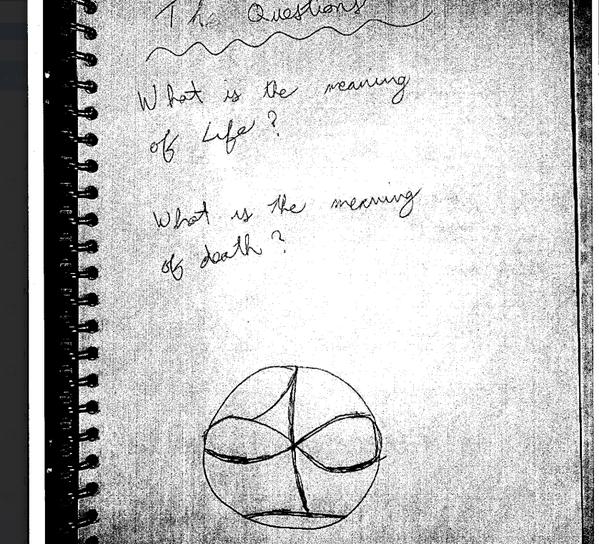 The Questions
What is the meaning
of Life?
What is the meaning
of death?